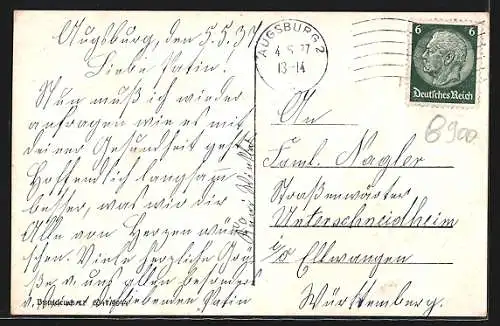 Augsburg, den 5.5.37
Liebe Patin.
Nun muß ich wieder
anfragen wie es mit
deiner Gesundheit geht
Hoffentlich langsam
besser, was wir dir
Alle von Herzen wün-
schen. Viele herzliche Grü-
ße, v. uns allen besonders
v. liebenden Patin
AUGSBURG 2
4.5.37
13-14
6 6
Deutsches Reich
8900
An
Faml. Nagler
Straßenwärter
Unterschneidheim
i/o Ellwangen
Württemberg.